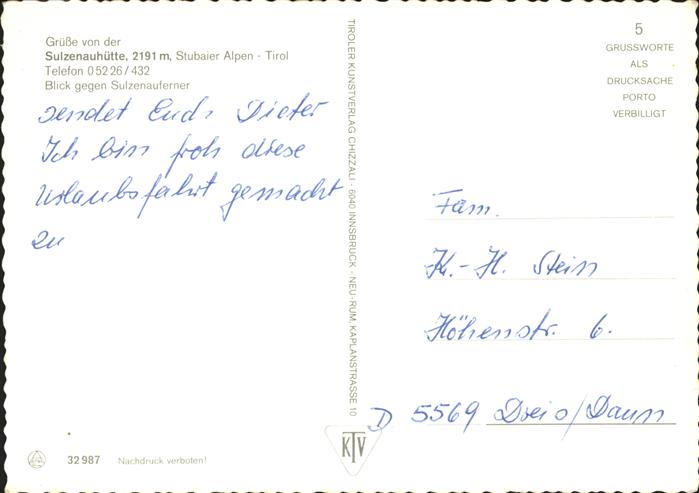 Grüße von der
Sulzenauhütte, 2191 m, Stubaier Alpen - Tirol
Telefon 0 52 26 / 432
Blick gegen Sulzenauferner
sendet Euch Dieter
Ich bin froh diese
Urlaubsfahrt gemacht
zu
TIROLER KUNSTVERLAG CHIZZALI - 6040 INNSBRUCK - NEU-RUM, KAPLANSTRASSE 10
5
GRUSSWORTE
ALS
DRUCKSACHE
PORTO
VERBILLIGT
Fam.
K.-H. Stein
Höhenstr. 6.
D 5569 Dreis/Daun
KTV
32 987 Nachdruck verboten!